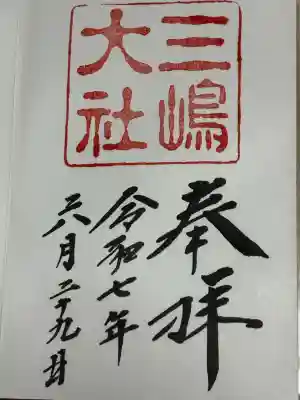 三嶋
大社
奉拝
令和七年
六月二十九日